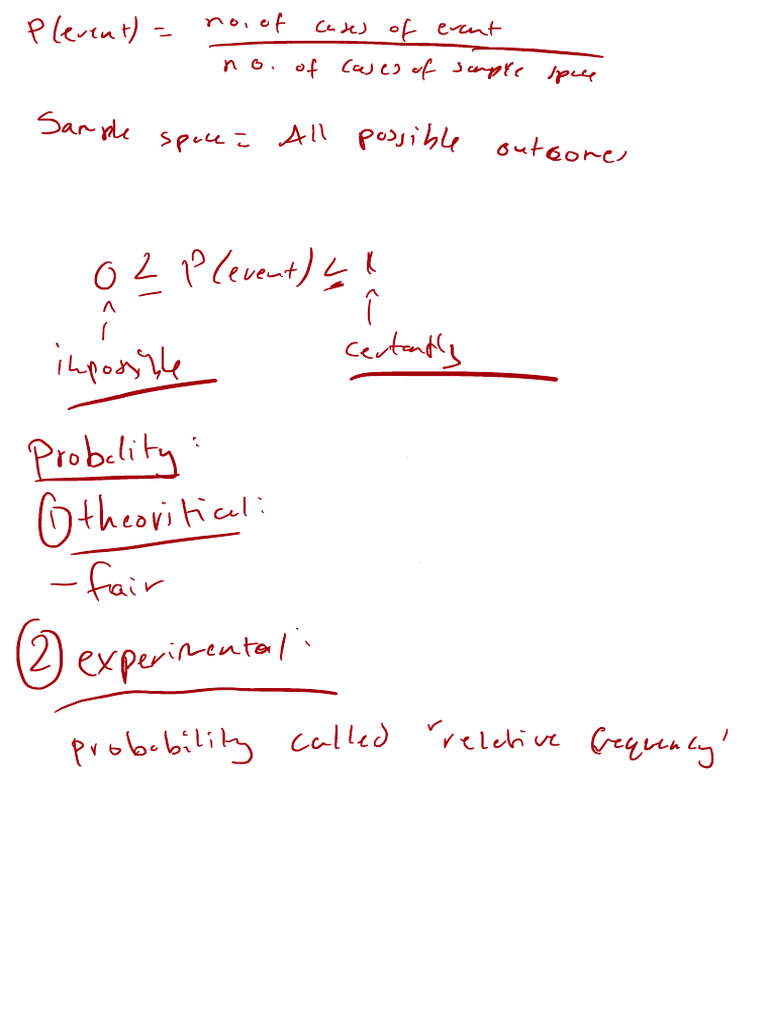 P(event) = no. of cases of event / no. of cases of sample space
Sample space = All possible outcomes
0 ≤ P(event) ≤ 1
impossible certantly
Probality:
① theoritical:
- fair
② experimental:
probability called "relative frequency"